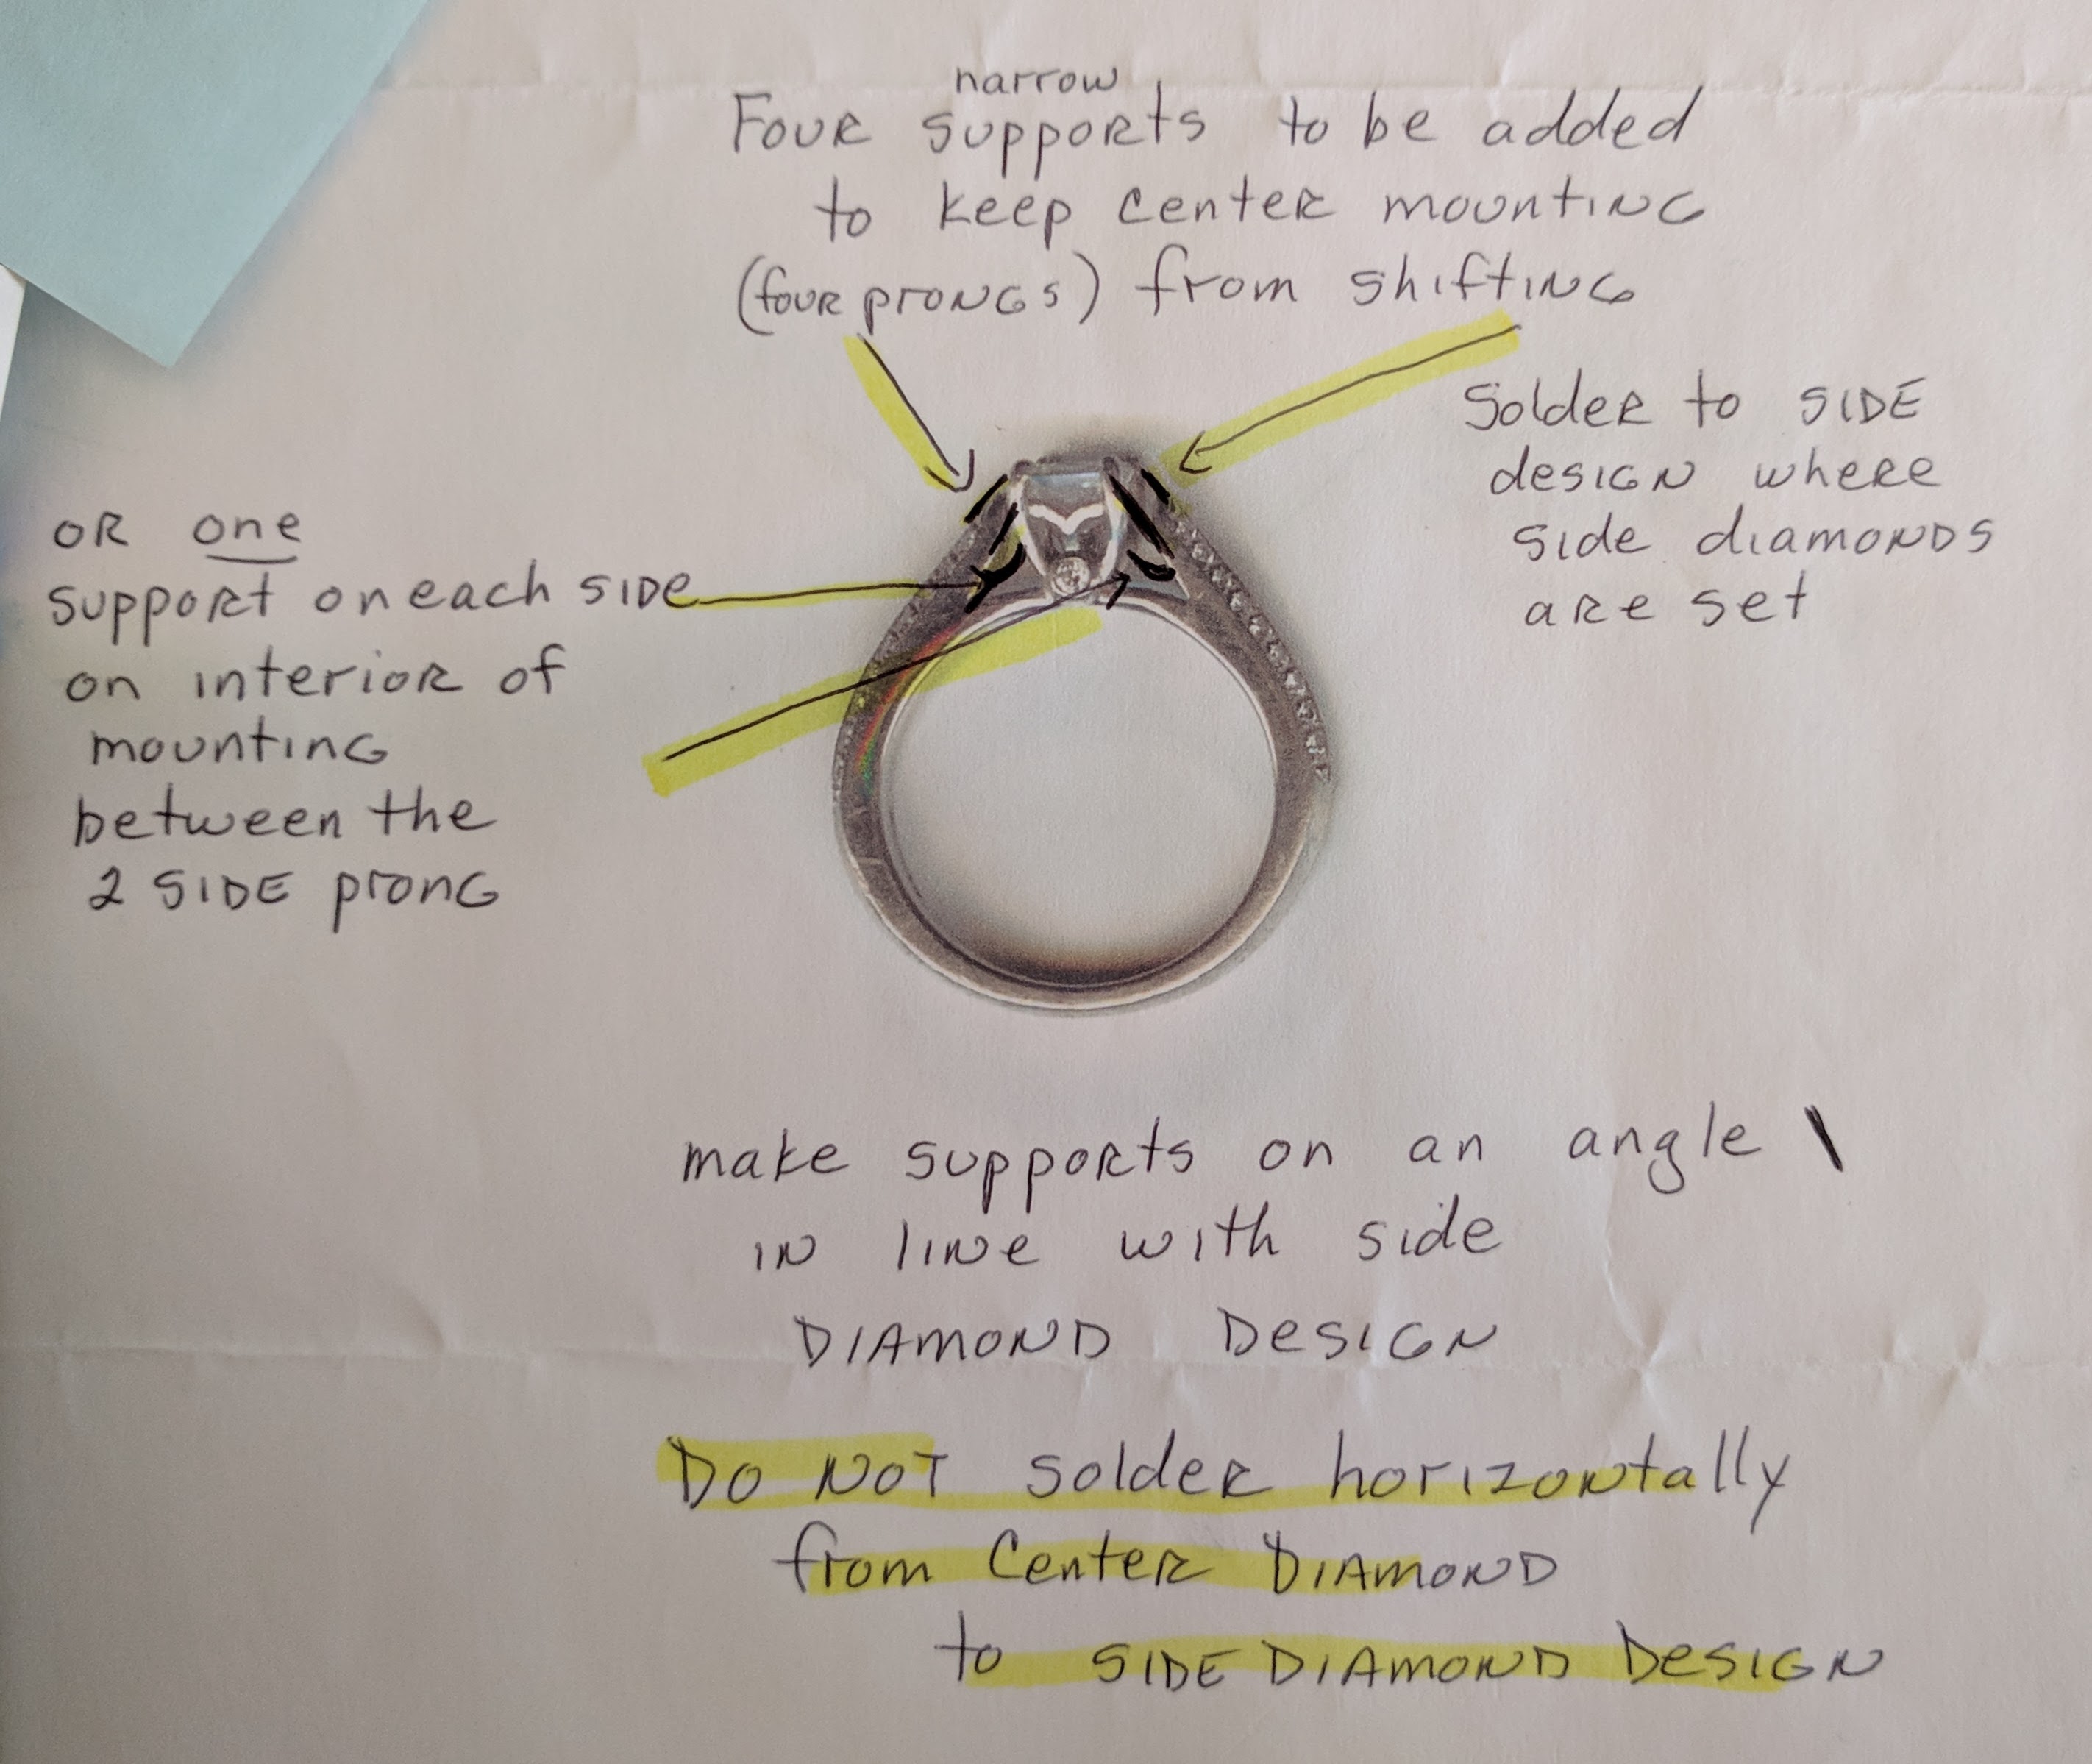 Four narrow supports to be added
to keep center mounting
(four prongs) from shifting
Solder to SIDE
design where
side diamonds
are set
OR one
support on each side
on interior of
mounting
between the
2 SIDE prong
make supports on an angle \
in line with side
DIAMOND DESIGN
DO NOT solder horizontally
from Center DIAMOND
to SIDE DIAMOND DESIGN